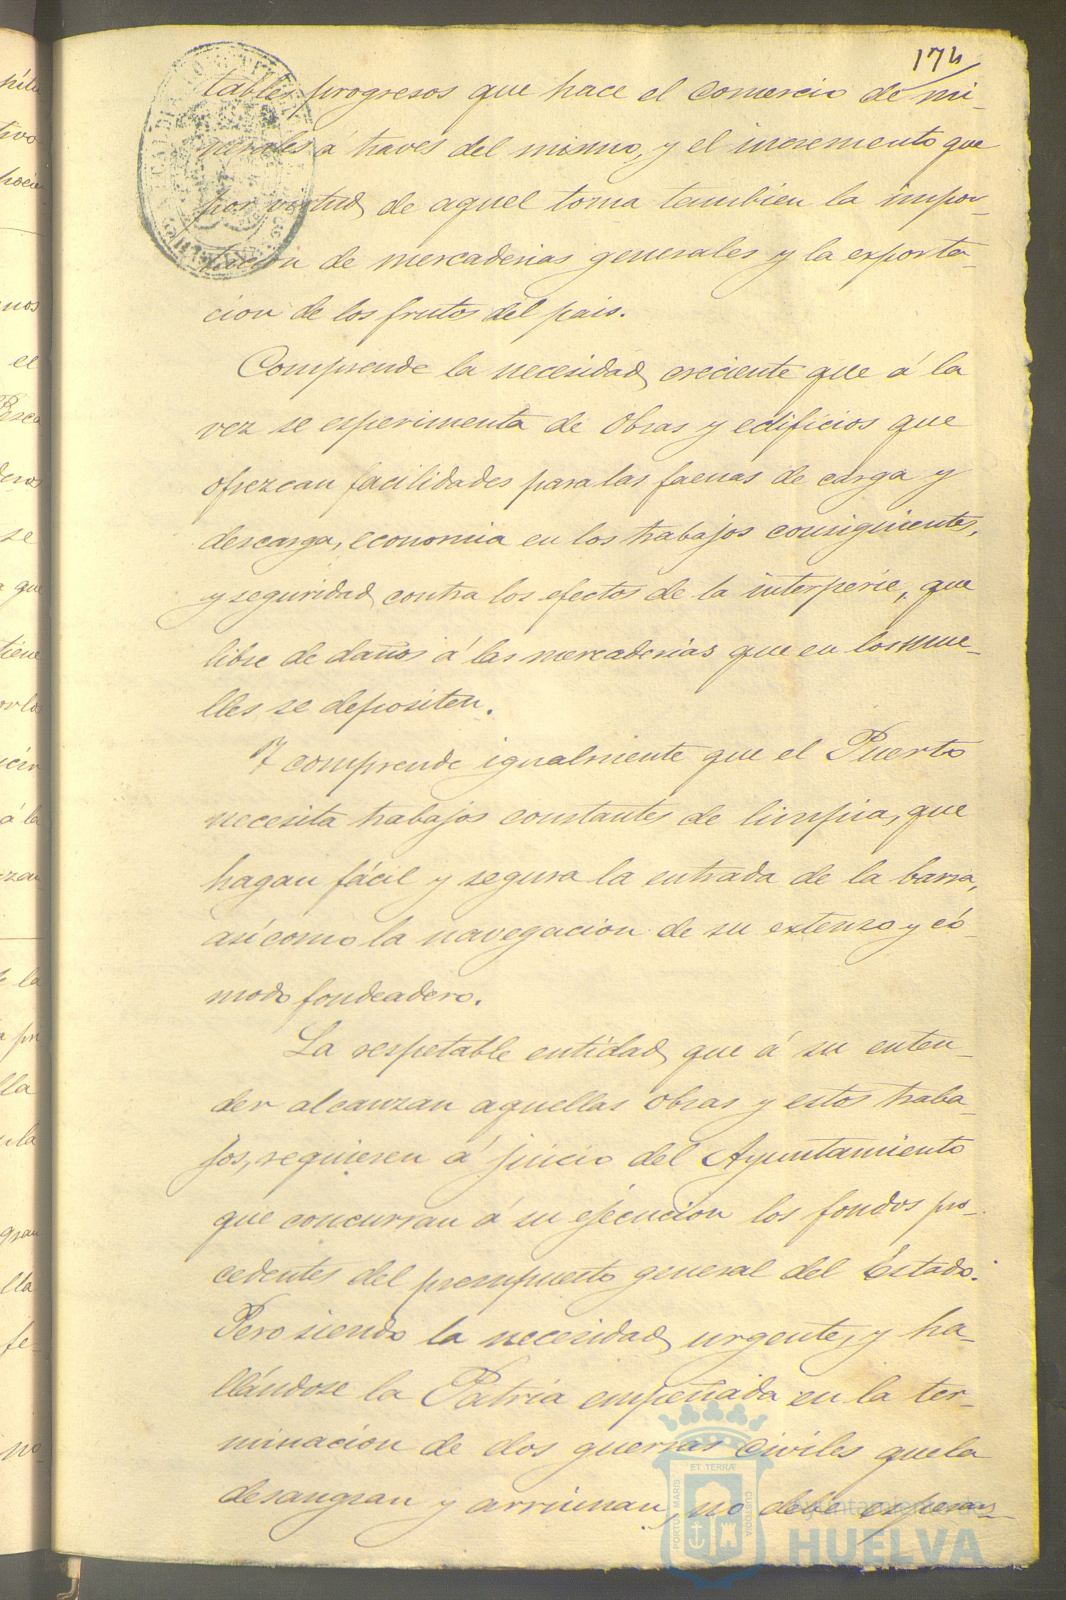 174
tables progresos que hace el Comercio de mi-
nerales á traves del mismo, y el incremento que
por virtud de aquel toma tambien la impor-
tacion de mercaderias generales y la exporta-
cion de los frutos del pais.
Comprende la necesidad creciente que á la
vez se esperimenta de Obras y edificios que
ofrezcan facilidades para las faenas de carga y
descarga, economia en los trabajos consiguientes,
y seguridad contra los efectos de la interperie, que
libre de daños á las mercaderias que en los mue-
lles se depositen.
Y comprende igualmente que el Puerto
necesita trabajos constantes de limpia, que
hagan fácil y segura la entrada de la barra,
asi como la navegacion de su extenso y có-
modo fondeadero.
La respetable entidad que á su enten-
der alcanzan aquellas obras y estos traba-
jos, requieren á juicio del Ayuntamiento
que concurran á su ejecucion los fondos pro-
cedentes del presupuesto general del Estado.
Pero siendo la necesidad urgente, y ha-
llándose la Patria empeñada en la ter-
minacion de dos guerras civiles que la
desangran y arruinan, no debe esperar
PORTUS MARIS ET TERRAE CUSTODIA
Ayuntamiento de
HUELVA